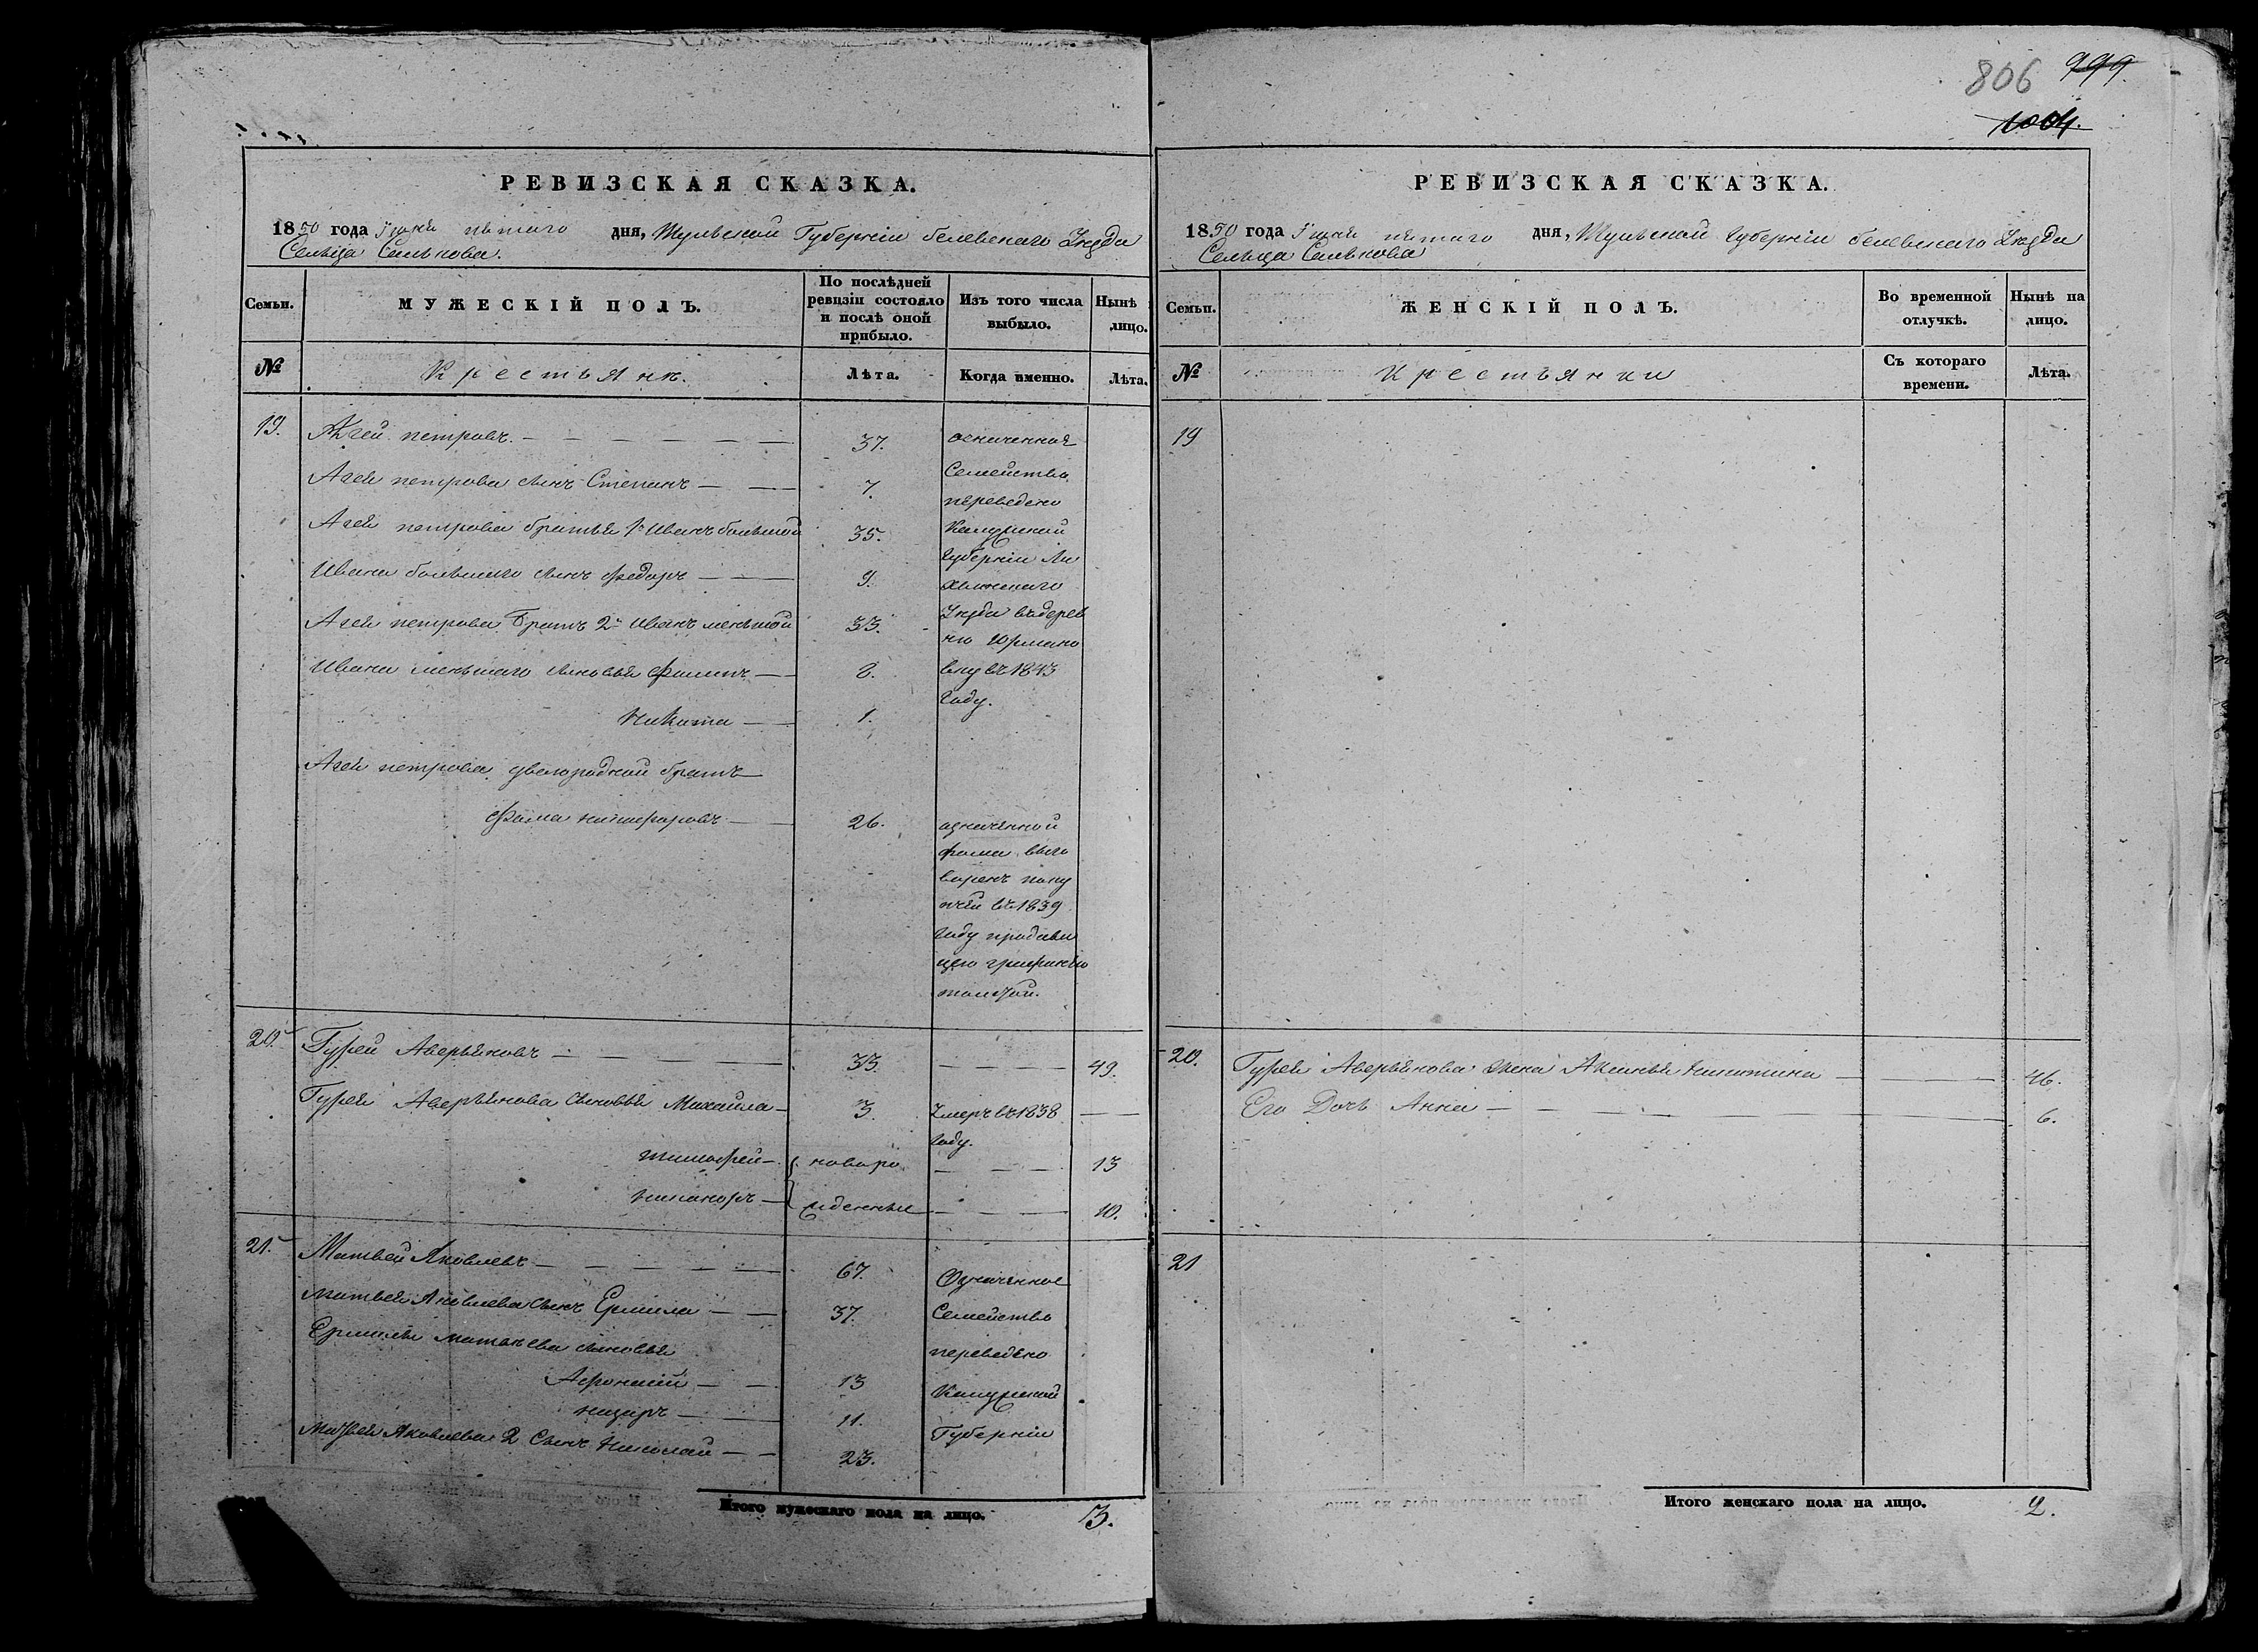 806 999.
1004.
РЕВИЗСКАЯ СКАЗКА.
1850 года Іюня пятаго дня, Тульской Губерніи белевскаго Уѣзда
Сельца Сенькова.
Семьи.
МУЖЕСКІЙ ПОЛЪ.
По послѣдней ревизіи состояло и послѣ оной прибыло.
Изъ того числа выбыло.
Нынѣ
лицо.
№
Крестьянѣ.
Лѣта.
Когда именно.
Лѣта.
19. Агей петровъ. 37. означенная
Агея петрова сынъ Степанъ 7. Семейство
переведено
Агея петрова братья 1й Иванъ большой 35. Калужской
Губерніи Ли
Ивана большаго сынъ Федоръ 9. хвинскаго
Агея петрова Братъ 2й Иванъ меньшой 33. Уѣзда въ дерев
ню
Ивана меньшаго сыновья Филипъ 8. въ 1843
Году.
Никита 1.
Агея петрова двоюродной братъ
Фома никифоровъ 26. означенной
фома
въ 1839
Году
20. Гурей Аверьяновъ 33. 49.
Гурея Аверьянова сыновья Михайла 3. Умеръ въ 1838
Году.
тимофей новоро 13
никаноръ жденные 10.
21. Матвей Яковлевъ 67. Означенное
Матвея Яковлева сынъ Ермила 37. Семейство
Ермилы матвѣева сыновья переведено
Афонасій 13 Калужской
назаръ 11. Губерніи
Матвея Яковлева 2 Сынъ Николай 23.
Итого мужескаго пола на лицо. 3.
РЕВИЗСКАЯ СКАЗКА.
1850 года Іюня пятаго дня, Тульской Губерніи белевскаго Уѣзда
Сельца Сенькова
Семьи.
ЖЕНСКІЙ ПОЛЪ.
Во временной отлучкѣ.
Нынѣ на лицо.
№
Крестьянки
Съ котораго времени.
Лѣта.
19
20. Гурея Аверьянова жена Аксинья никитина 46.
Его Дочь Анна 6.
21
Итого женскаго пола на лицо. 2.